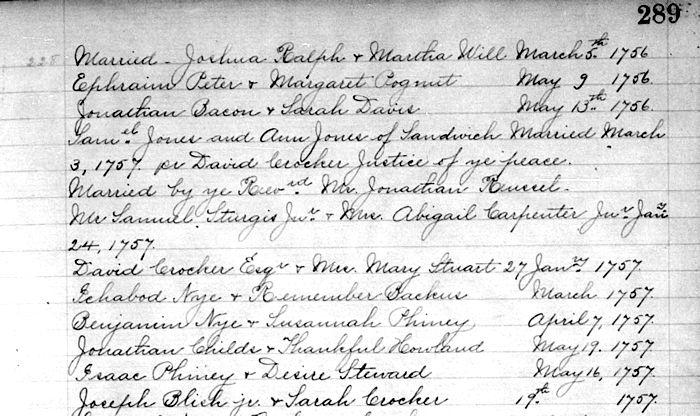 289
225 Married - Joshua Ralph & Martha Will March 5th 1756
Ephraim Peter & Margaret Pognit May 9 1756.
Jonathan Bacon & Sarah Davis May 13th 1756.
Samel Jones and Ann Jones of Sandwich Married March
3, 1757. pr David Crocker Justice of ye peace.
Married by ye Revrd Mr. Jonathan Russel.
Mr Samuel Sturgis Junr & Mrs. Abigail Carpenter Junr Jany
24, 1757.
David Crocker Esqr & Mrs. Mary Stuart 27 Janry 1757.
Ichabod Nye & Remember Backus March 1757.
Benjamin Nye & Susannah Phiney April 7, 1757.
Jonathan Childs & Thankful Howland May 19. 1757.
Isaac Phiney & Desire Steward May 16, 1757.
Joseph Blish jr. & Sarah Crocker 19th 1757.